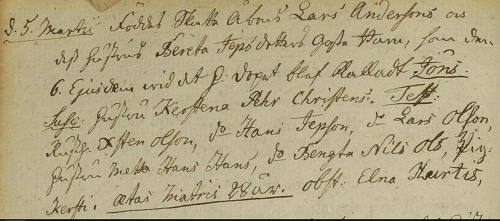 d. 5. Martii Föddes Skatte Åbons Lars Andersons och
dess hustrus Bereta Jeps dotters Goße Barn, som den
6. Ejusdem wid det H. Dopet blef kalladt Jöns.
Susc. hustru Kerstena Pehr Christens. Test:
Christen Olson, do Hans Jepson, do Lars Olson
hustru Metta Hans Hans, do Bengta Nils Ols, Pig:
Kersti. Ætas Matris 28 år. obst: Elna